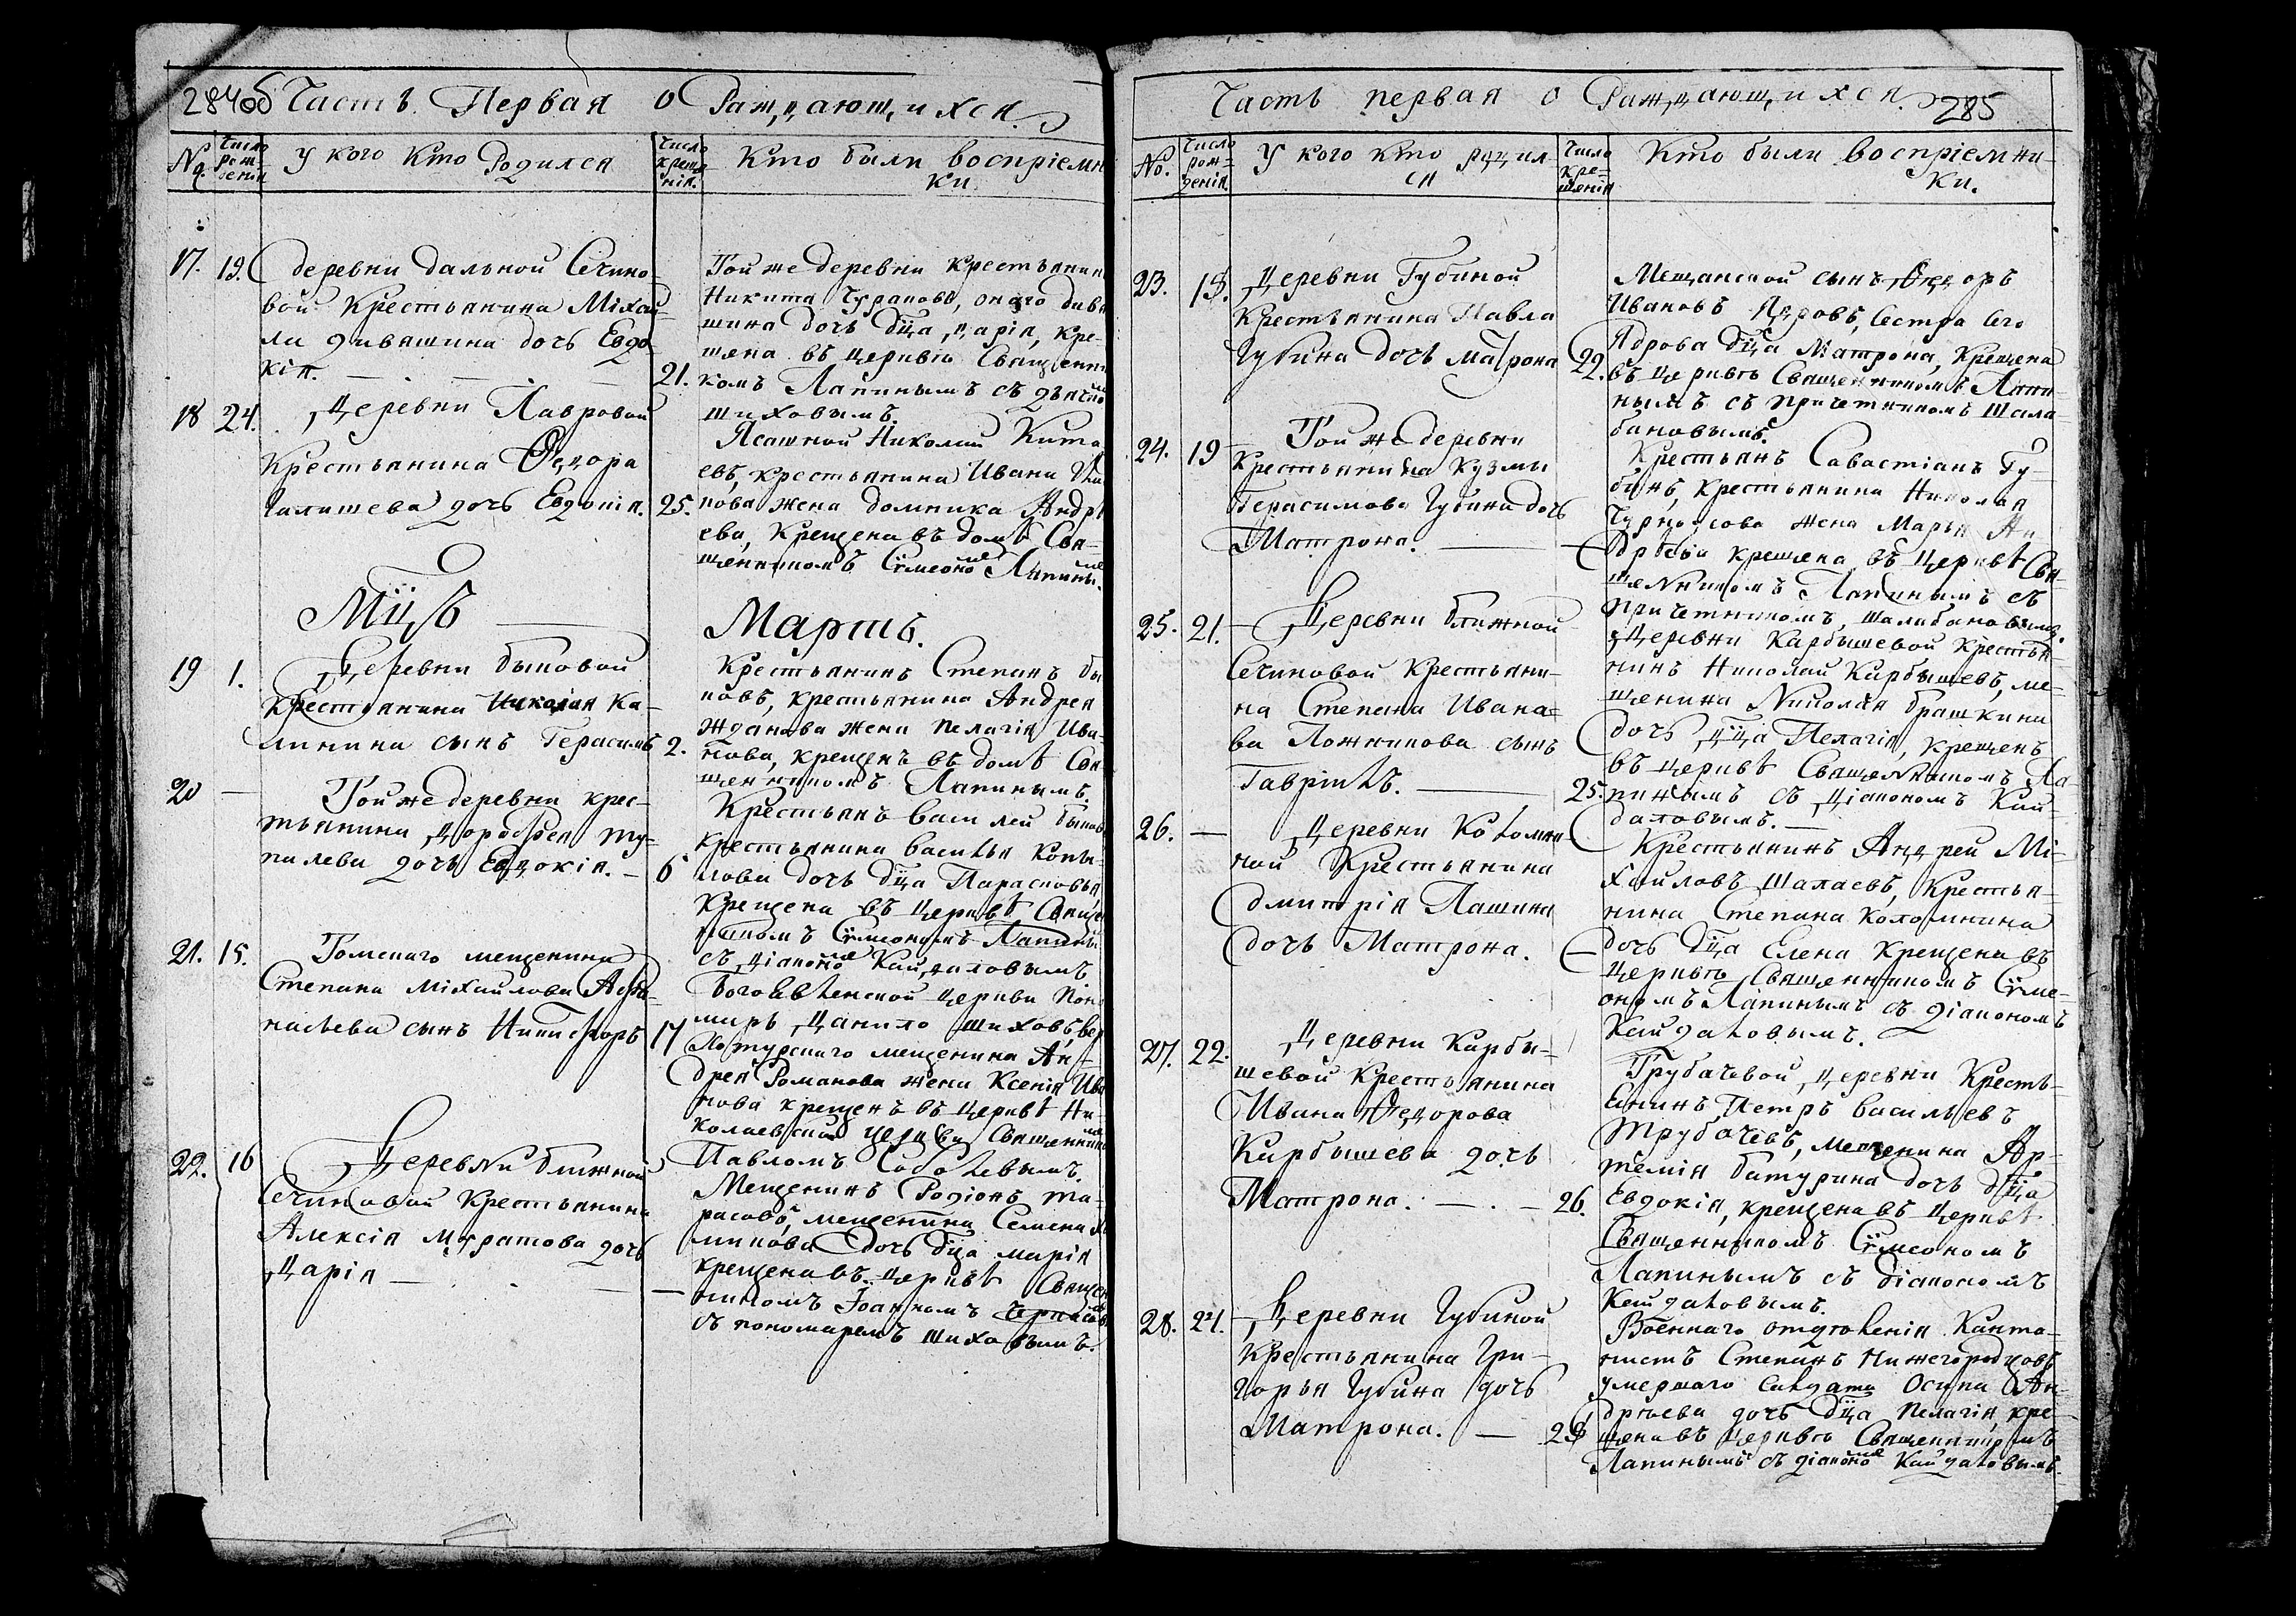 284об Часть Первая о Раждающихся.
No. Число рожденія У кого Кто Родился Число крещенія. Кто были воспріемники.
17. 19. деревни дальной Сечино-
вой Крестьянина Міхай-
ли дивяшина дочь Евдо-
кія. 21.
Той же деревни Крестьянин
Никита Чураковъ, онаго дивя
шина дочь дца Дарія, кре-
щена въ церкви Священни
комъ Лапинымъ съ дьячко
Шиховымъ.
18 24. Деревни Лавровой
Крестьянина Федора
Галишева дочь Евдокія. 25.
Ясашной Николай Кита
евъ, крестьянина Ивана
нова жена домника Андре
ева, Крещена въ домѣ Свя-
щенникомъ Сѵмеоно Лапины
Мцъ Мартъ.
19 1. Деревни быковой
Крестьянина Николая Ка-
линина сынъ Герасимъ 2.
Крестьянинъ Степанъ бы
ковъ, крестьянина Андрея
Жданова жена Пелагія Ива-
нова, крещенъ въ домѣ Свя
щенникомъ Лапинымъ.
20 — Той же деревни крес-
тьянина Дорофея ту-
пилева дочь Евдокія. — 6
Крестьянъ василей быков
крестьянина Василья Копы-
лова дочь дца Парасковья
Крещена въ Церквѣ Свяще
нникомъ Сѵмеономъ Лапины
съ діаконо Кайдаловымъ
21. 15. Томскаго мещенина
Степана Міхайлова Афа-
насьева сынъ Никифоръ 17
Богоявленской церкви Пон
марь Данило Шиховъ, вер
хотурскаго мещенина Ан-
дрея Романова жена Ксенія Ива
нова крещенъ въ церквѣ Ни-
колаевской церкви Священник
Павломъ Соболевымъ.
22. 16 Деревни ближной
Сечиновой Крестьянина
Алексія Муратова дочь
Дарія — —
Мещенинъ Родіонъ та-
расовъ, мещенина Семена
минова дочь дца марія
крещена въ церквѣ Священ
никомъ Іоанномъ
съ пономаремъ шиховымъ.
Часть первая о Раждающихся. 285
No. Число рожденія У кого кто родился Число крещенія Кто были воспріемники.
23. 18. Деревни Губиной
Крестьянина Павла
Губина дочь матрона 22.
Мещанской сынъ Федоръ
Ивановъ Ядровъ, Сестра его
Ядрова дца Матрона, Крещена
въ церквѣ Священникомъ Лапи
нымъ съ причетникомъ Шала
бановымъ.
24. 19 Той же деревни
Крестьянина Кузмы
Герасимова Губина дочь
Матрона. —
Крестьянъ Савастіанъ Гу-
бинъ, крестьянина Николая
жена Марья Ан-
дрѣева крещена въ Церквѣ Свя-
щенникомъ Лапинымъ съ
причетникомъ, Шалабановымъ.
25. 21. Деревни ближной
Сечиновой Крестьяни-
на Степана Ивана-
ва Ложникова сынъ
Гаврілъ. 25.
Деревни Карбышевой Крестья-
нинъ Николай Карбышевъ, ме-
щенина Николая брашкина
дочь дца Пелагія, крещенъ
въ церквѣ Священникомъ Ла-
пинымъ съ діакономъ Кай-
даловымъ. —
26. — Деревни Коломни-
ной Крестьянина
дмитрія Пашина
дочь Матрона. —
Крестьянинъ Андрей Мі-
хайловъ Шалаевъ, Крестья-
нина Степана Коломнина
дочь дца Елена Крещена въ
церквѣ Священникомъ Сѵме-
ономъ Лапинымъ съ діакономъ
Кайдаловымъ.
27. 22. Деревни Карбы-
шевой Крестьянина
Ивана Федорова
Карбышева дочь
Матрона. — . — 26.
Трубачевой деревни Кресть-
янинъ Петръ Васильевъ
Трубачевъ, мещенина Ар-
темія батурина дочь дца
Евдокія, крещена въ церквѣ
Священникомъ Сѵмеономъ
Лапинымъ съ діакономъ
Кайдаловымъ.
28. 24. Деревни Губиной
Крестьянина Гри-
горья Губина дочь
Матрона. — 28
Военнаго отдѣленія Канто-
нистъ Степанъ Нижегородцовъ
умершаго Салдата Осипа Ан-
дрѣева дочь дца Пелагія, кре-
щена въ церквѣ Священникомъ
Лапинымъ съ діаконо Кайдаловымъ.